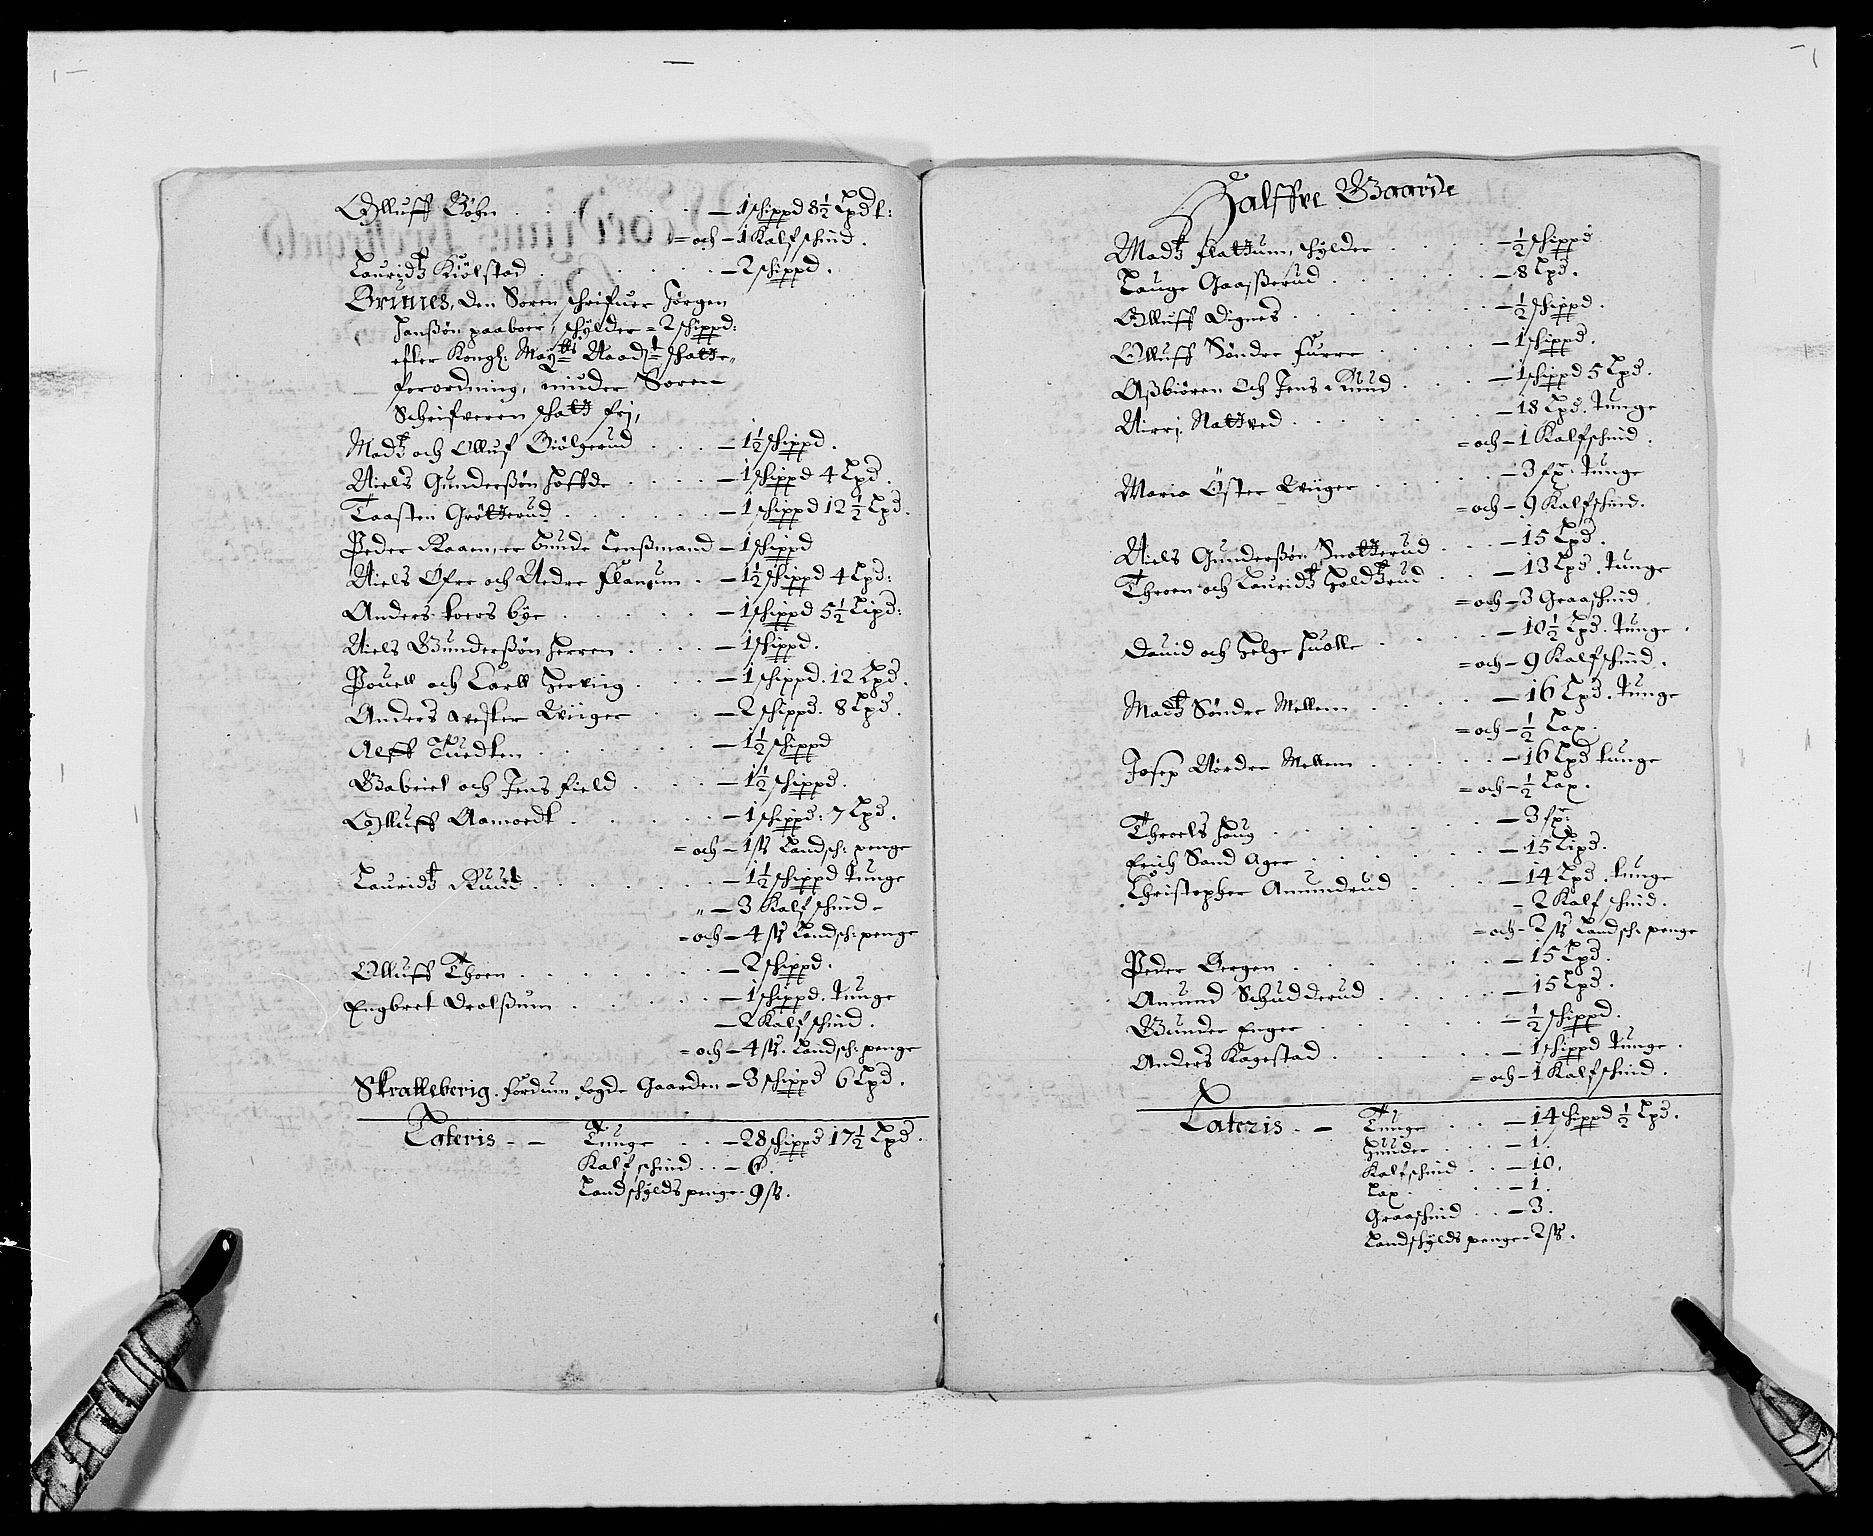 Olluff Böhn . . . . . – 1 schippd 8½ Lpdt:
= och – 1 Kalfschind.
Lauridtz Kiölstad . . . . – 2 schippd.
Grimes, den Soren schrifuer Jörgen
Hanßön paaboer, schylder = 2 schippd:
efter Kongl: Maytts Naadste schatte„
forordning, munder Soren„
Schrifveren schatt frj,
Madtz och Olluf Giölgerud . . . – 1½ schippd.
Niels Gunderßön Hoffde . . . . – 1 schippd 4 Lpd.
Taasten Grötterud . . . . . – 1 schippd 12½ Lpd.
Peder Kaam, er bunde Lenßmand – 1 schippd
Niels Öfre och Nedre Flanum . – 1½ schippd 4 Lpd:
Anders Koers bye . . . . . – 1 schippd 5½ Lipd:
Niels Gunderßön Herren . . . . – 1 schippd.
Pouell och Carll Herviig . . . – 1 schippd. 12 Lpd.
Anders Vester Wiiger . . . – 2 schippd. 8 Lpd.
Aleff Tuedten . . . . . – 1½ schippd
Gabriel och Jens Field . . . . – 1½ schippd.
Olluff Aamoedt . . . . . – 1 schippd: 7 Lpd.
= och – 1 ß Landsch: penge
Lauridtz Ruud . . . . . – 1½ schippd tunge
„ – 3 Kalfschind –
= och – 4 ß Landsch: penge
Olluff Thoen . . . . . – 2 schippd.
Engbret Drolßum . . . . . – 1 schippd. tunge
– 2 Kalfschind.
= och – 4 ß. Landsch: penge
Skralleberig. fordum fogde Gaarden – 3 schippd 6 Lpd.
Lateris – – Tunge . . – 28 schippd 17½ Lpd.
Kalfschind . . – 6.
Landschylds penge – 9 ß.
Halffve Gaarde
Madtz Flattum, schylder . . . . – ½ schippd
Lauge Gaaßerud . . . . . – 8 Lpd.
Olluff Dignes . . . . . – ½ schippd.
Olluff Söndre Furre . . . . – 1 schippd.
Aßbiören och Jens Ruud . . . . – 1 schippd 5 Lpd.
Nirrj Nattved . . . . . – 18 Lpd. tunge
= och – 1 Kalfschind.
Maria Öster Wiiger . . . . . – 3 fr. tunge
= och – 9 Kalfschind.
Niels Gunderßön Snotterud . . . – 15 Lpd.
Throen och Lauridtz Holdtzrud . . – 13 Lpd. tunge
= och – 3 Graaschind
Dauid och Helge Huolle . . . . – 10½ Lpd. tunge.
= och – 9 Kalfschind.
Madtz Söndre Mellem . . . . – 16 Lpd. tunge
= och – ½ Lax.
Josep Nördre Mellem . . . . . – 16 Lpd tunge
= och – ½ Lax.
Throels Houg . . . . . – 3 fr:
Erich Sand Ager . . . . . – 15 Lipd.
Christopher Amundrud . . . . – 14 Lpd. tunge
– 2 Kalfschind.
= och – 2 ß Landsch: penge
Peder Bergen . . . . . – 15 Lpd.
Amund Schudderud . . . . . – 15 Lpd.
Gunder Enger . . . . . – ½ schippd.
Anders Kagestad . . . . . – 1 schippd tunge.
= och – 1 Kalfschind.
Lateris . – Tunge . . . – 14 schippd ½ Lpd.
Huuder . . . – 1.
Kalfschind . . – 10.
Lax . . . – 1.
Graaschind . . – 3.
Landschylds penge – 2 ß.